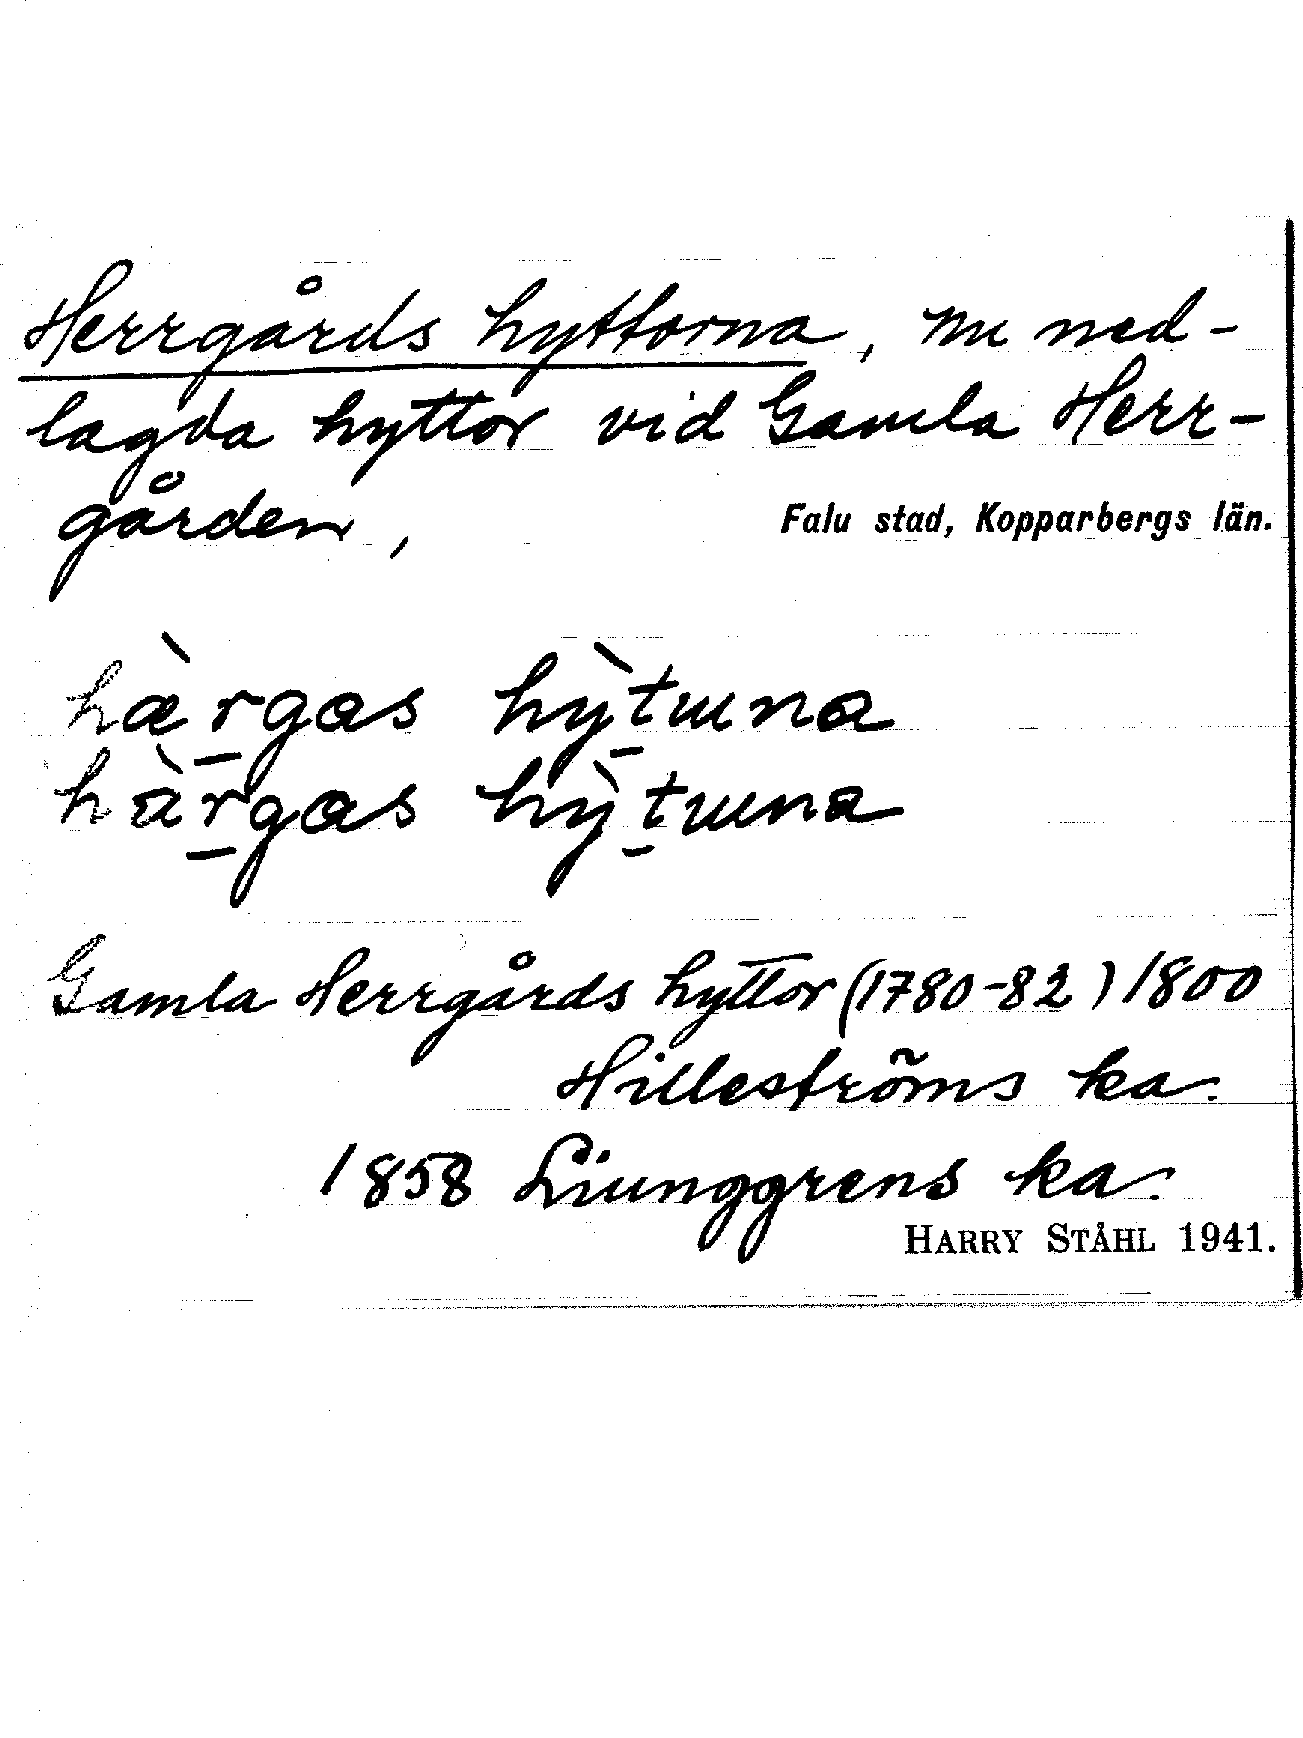 Herrgårds hyttorna, nu ned-
lagda hyttor vid Gamla Herr-
gården,
Falu stad, Kopparbergs län.
hæ̀r̲gɑs hỳt̲ɯna
hàr̲gɑs hỳt̲ɯna
Gamla Herrgårds hyttor (1780-82) 1800
Hilleströms ka.
1858 Liunggrens ka.
HARRY STÅHL 1941.